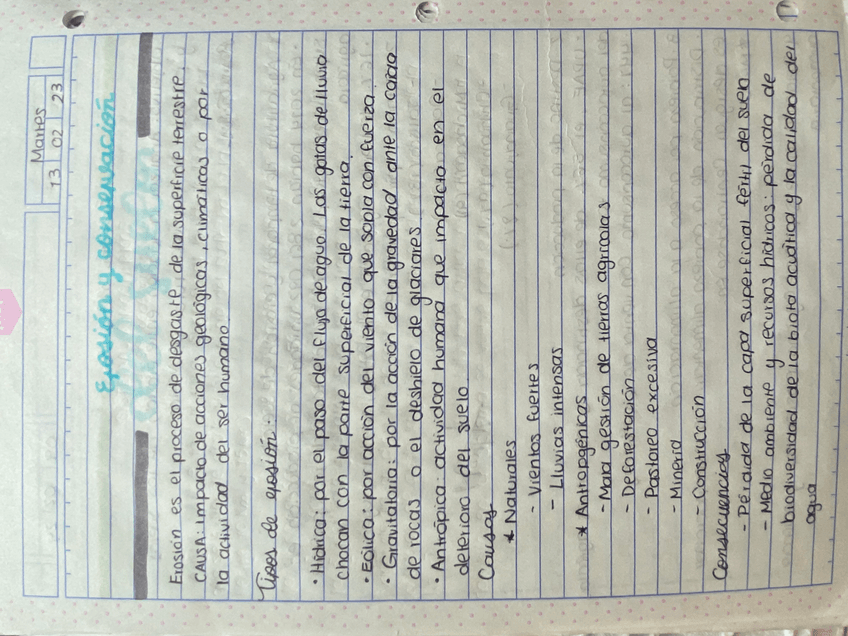 Martes
13 02 23
Erosión y conservación
del suelo
Erosión es el proceso de desgaste de la superficie terrestre.
CAUSA: Impacto de acciones geológicas, climáticas o por
la actividad del ser humano.
Tipos de erosión:
• Hídrica: por el paso del flujo de agua. Las gotas de lluvia
chocan con la parte superficial de la tierra.
• Eólica: por acción del viento que sopla con fuerza.
• Gravitatoria: por la acción de la gravedad ante la caída
de rocas o el deshielo de glaciares
• Antrópica: actividad humana que impacta en el
deterioro del suelo
Causas
* Naturales
- Vientos fuertes
- Lluvias intensas
* Antropogénicas
- Mala gestión de tierras agrícolas
- Deforestación
- Pastoreo excesiva
- Minería
- Construcción
Consecuencias
- Pérdida de la capa superficial fértil del suen
- Medio ambiente y recursos hídricos: pérdida de
biodiversidad de la biota acuática y la calidad del
agua